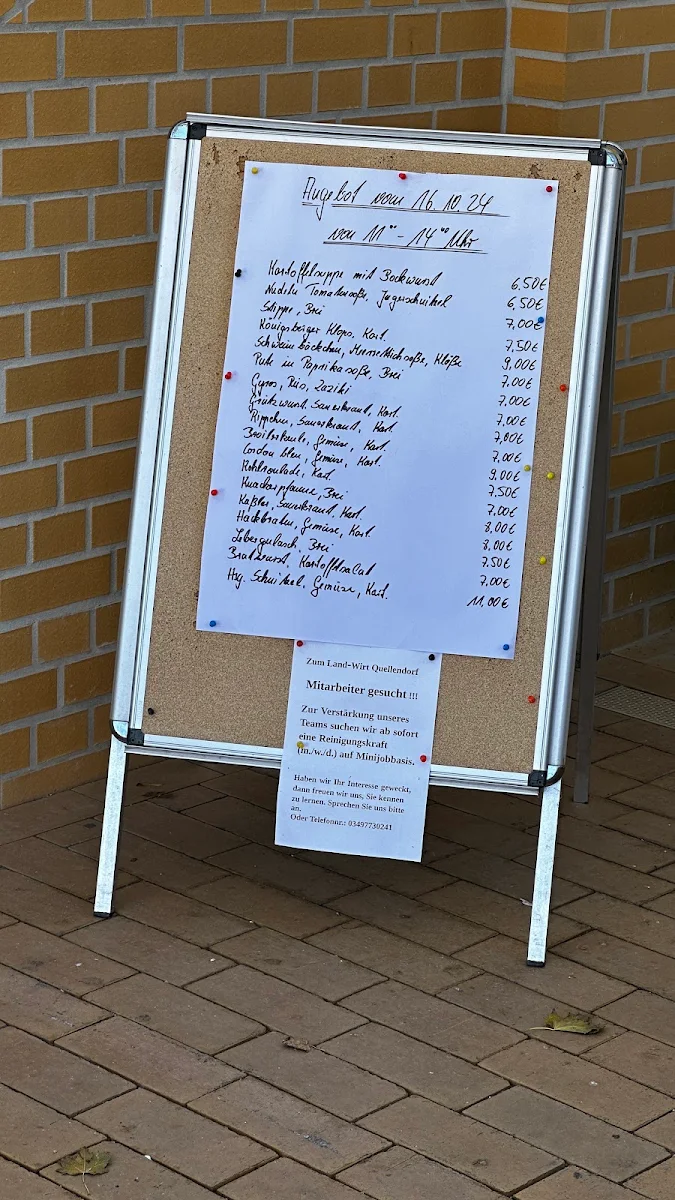 Angebot vom 16.10.24
von 11⁰⁰ - 14⁰⁰ Uhr
Kartoffelsuppe mit Bockwurst 6,50€
Nudeln Tomatensoße, Jägerschnitzel 6,50€
Stippe, Brei 7,00€
Königsberger Klops, Kart. 7,50€
Schweinebäckchen, Meerrettichsoße, Klöße 9,00€
Pute in Paprikasoße, Brei 7,00€
Gyros, Reis, Zaziki 7,00€
Grützwurst, Sauerkraut, Kart. 7,00€
Rippchen, Sauerkraut, Kart. 7,00€
Broilerkeule, Gemüse, Kart. 7,00€
Cordon bleu, Gemüse, Kart. 9,00€
Kohlroulade, Kart. 7,50€
Knackerpfanne, Brei 7,00€
Kaßler, Sauerkraut, Kart. 8,00€
Hackbraten, Gemüse, Kart. 8,00€
Lebergulasch, Brei 7,50€
Bratwurst, Kartoffelsalat 7,00€
Hsg. Schnitzel, Gemüse, Kart. 11,00€
Zum Land-Wirt Quellendorf
Mitarbeiter gesucht !!!
Zur Verstärkung unseres
Teams suchen wir ab sofort
eine Reinigungskraft
(m./w./d.) auf Minijobbasis.
Haben wir Ihr Interesse geweckt,
dann freuen wir uns, Sie kennen
zu lernen. Sprechen Sie uns bitte
an.
Oder Telefonnr.: 03497730241